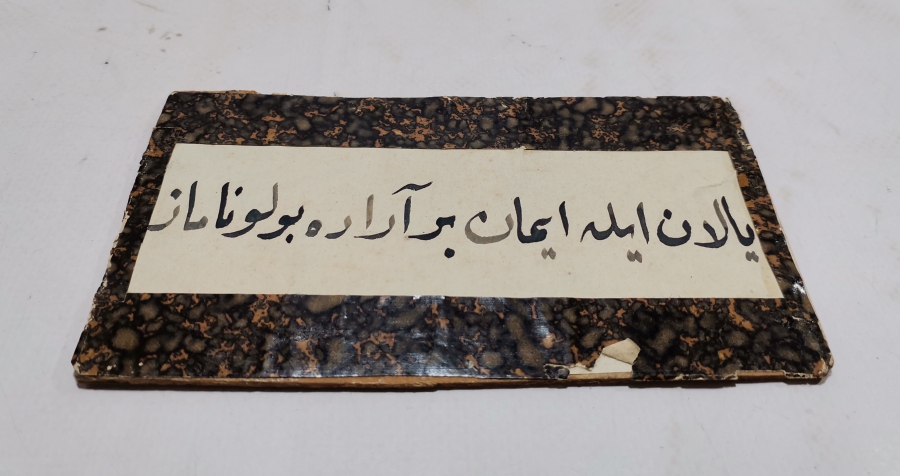 يالان ايله ايمان بر آراده بولوناماز